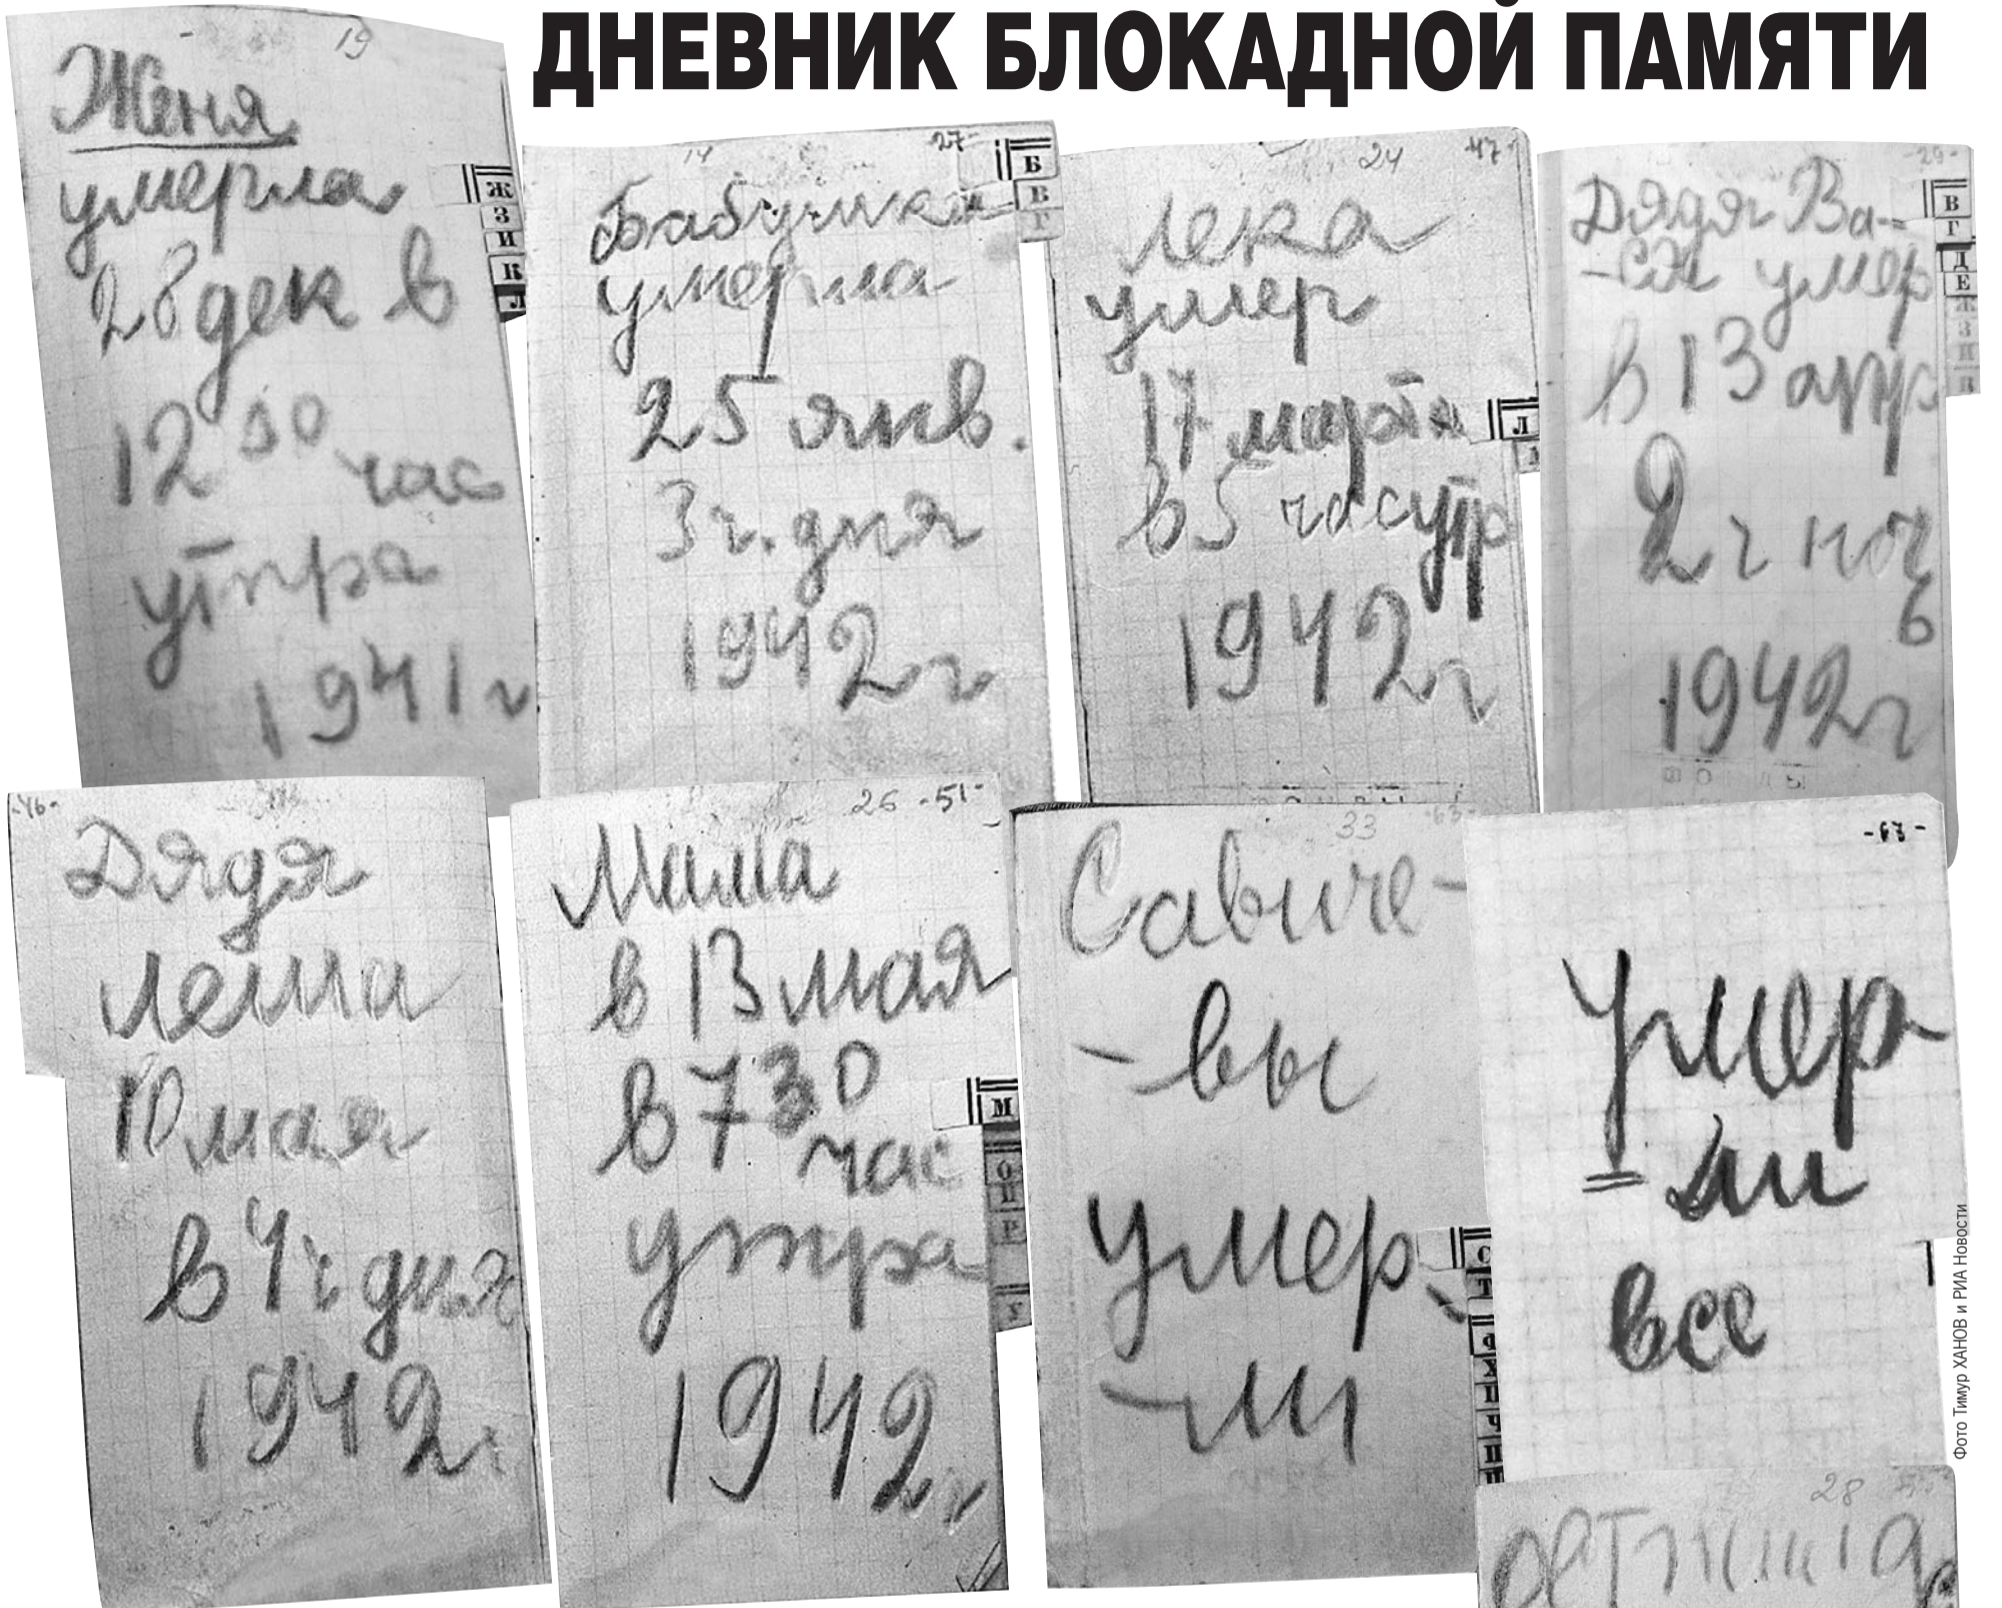 ДНЕВНИК БЛОКАДНОЙ ПАМЯТИ
19
Женя
умерла
28 дек в
12 30 час
утра
1941 г
Ж
З
И
К
Л
14 27-
Бабушка
умерла
25 янв.
3 ч. дня
1942 г
Б
В
Г
24 47-
Лека
умер
17 марта
в 5 час утр
1942 г
Л
-29-
Дядя Ва-
-ся умер
в 13 апр
2 ч ноч
ь
1942 г
В
Г
Д
Е
Ж
З
И
К
-46-
Дядя
Леша
10 мая
в 4 ч дня
1942 г
26 -51-
Мама
в 13 мая
в 7 30
час
утра
1942 г
М
О
П
Р
У
33 -63-
Савиче-
-вы
умер-
-ли
С
Т
-67-
Умер
=ли
все
28
Фото Тимур ХАНОВ и РИА Новости